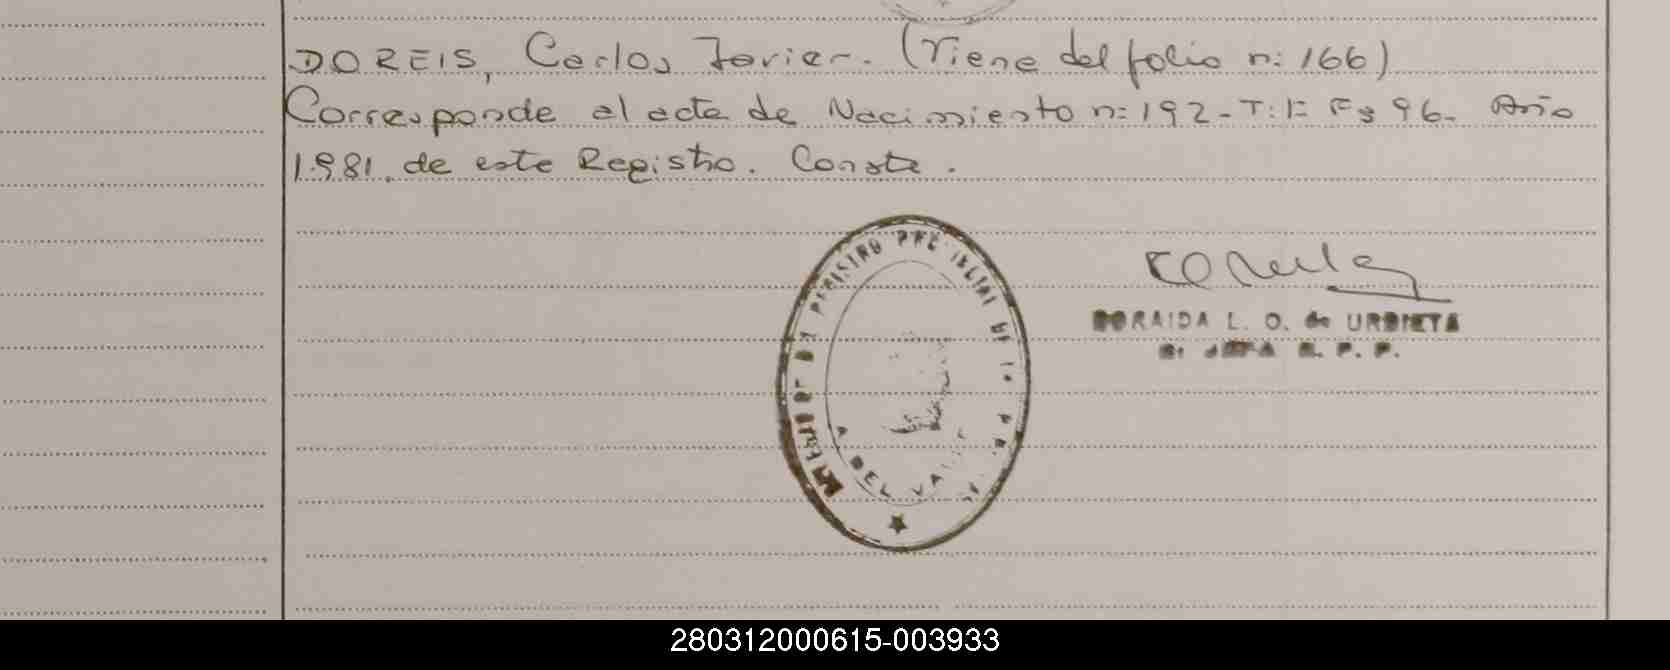 DOREIS, Carlos Javier. (Viene del folio n: 166)
Corresponde al acta de Nacimiento n: 192 - T: 1: Fs 96. Año
1.981. de este Registro. Conste.
DORAIDA L. O. de URBIETA
JEFA R. P. P.
DEL
280312000615-003933